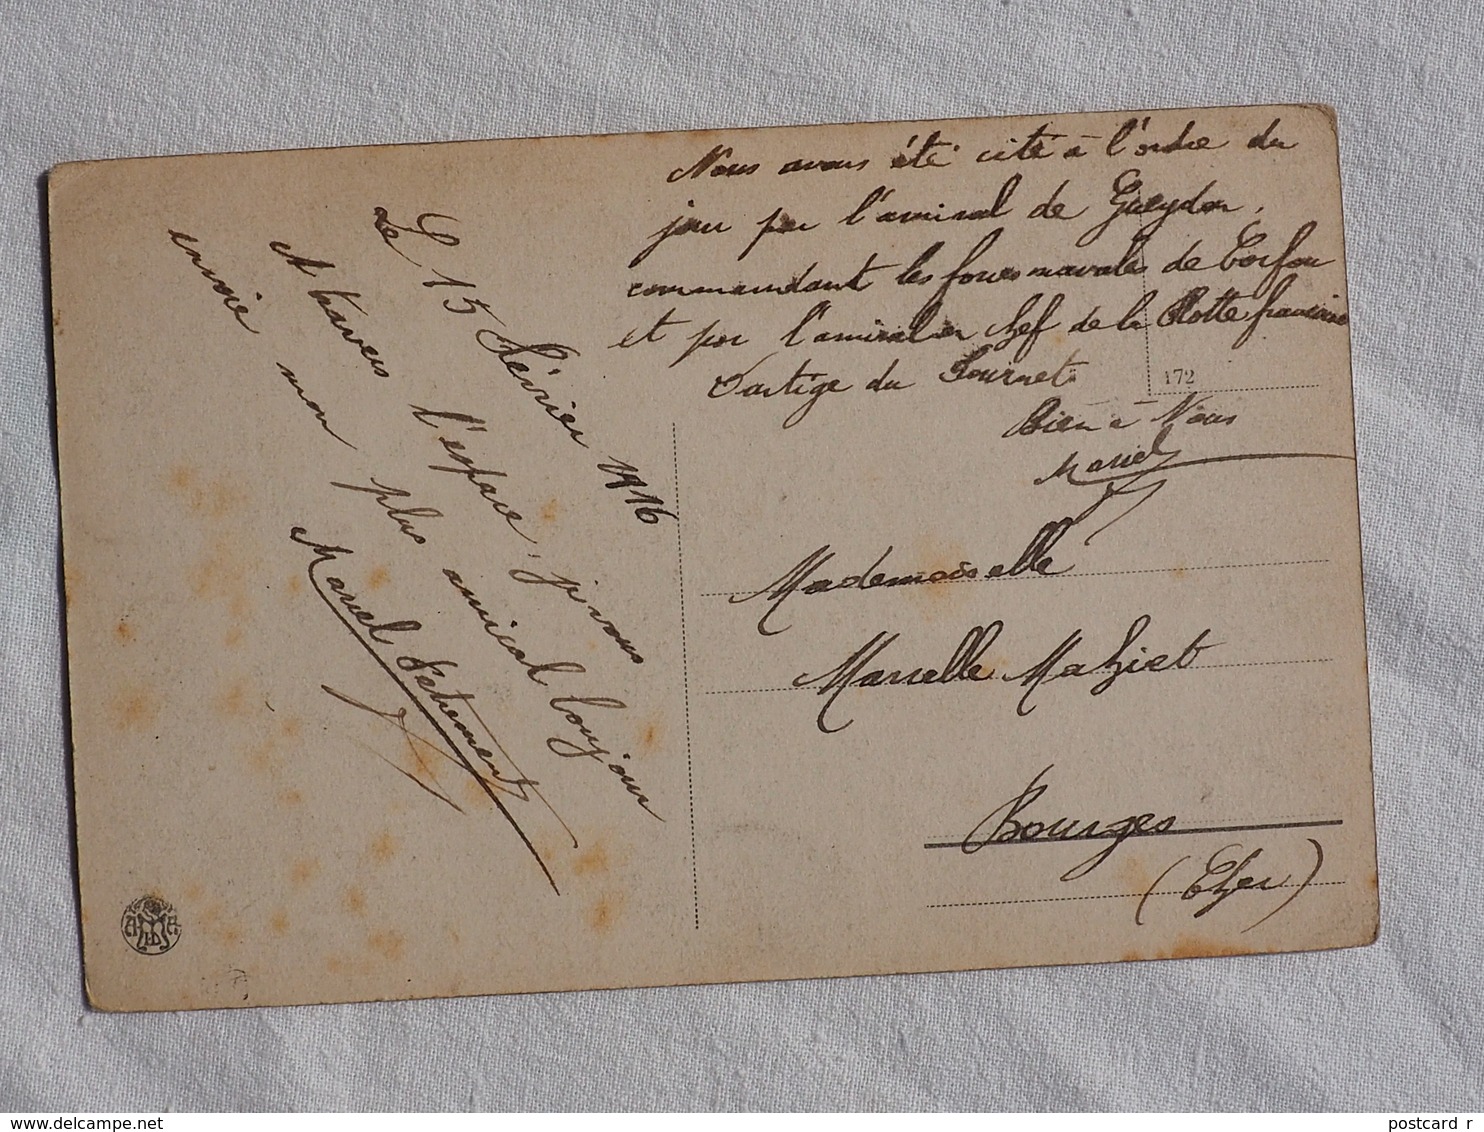 Le 15 Février 1916
A travers l'espace, j'vous
envoie mon plus amical bonjour
Marcel
Nous avons été cité à l'ordre du
jour par l'amiral de Gueydon,
commandant les forces navales de Corfou
et par l'amiral en chef de la Flotte française
Dartige du Fournet
172
Bien à Vous
Marcel
Mademoiselle
Marcelle Mahiet
Bourges
(Cher)
postcard r